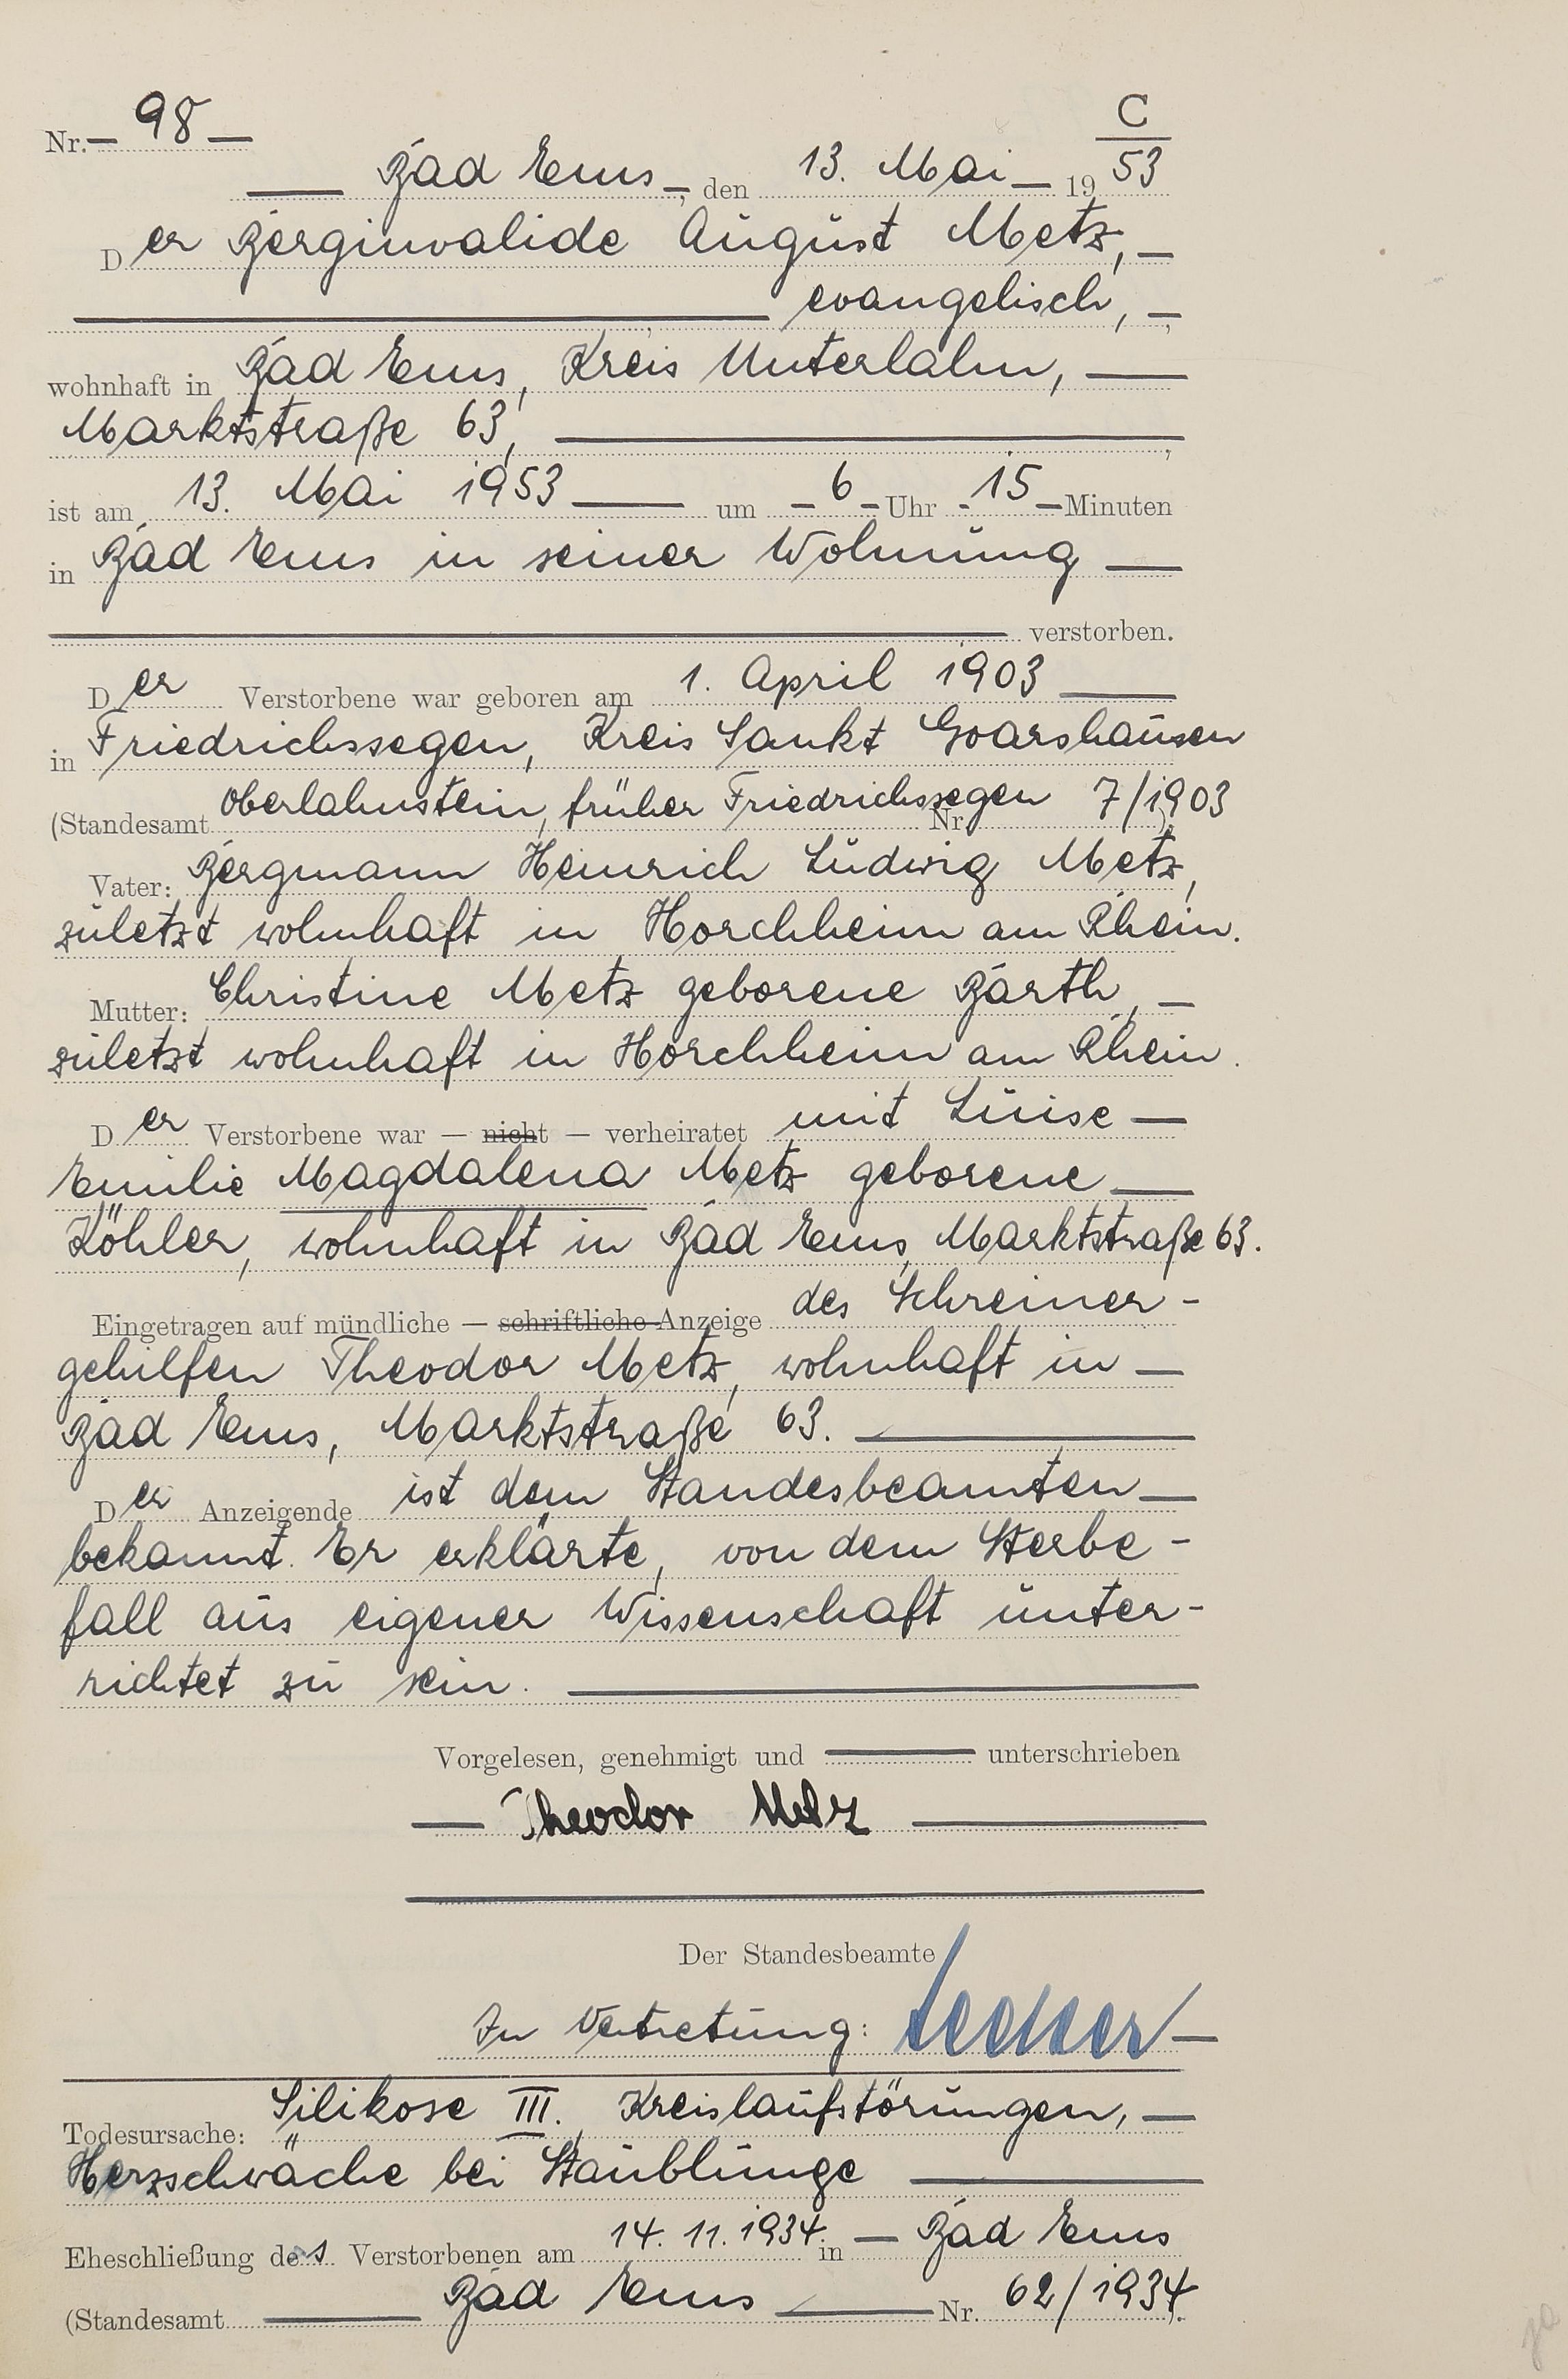 C
Nr. 98
Bad Ems, den 13. Mai 1953
Der Berginvalide August Metz,
evangelisch,
wohnhaft in Bad Ems, Kreis Unterlahn,
Marktstraße 63,
ist am 13. Mai 1953 um 6 Uhr 15 Minuten
in Bad Ems in seiner Wohnung
verstorben.
Der Verstorbene war geboren am 1. April 1903
in Friedrichssegen, Kreis Sankt Goarshausen
(Standesamt Oberlahnstein, früher Friedrichssegen Nr. 7/1903)
Vater: Bergmann Heinrich Ludwig Metz,
zuletzt wohnhaft in Horchheim am Rhein.
Mutter: Christine Metz geborene Barth,
zuletzt wohnhaft in Horchheim am Rhein.
Der Verstorbene war — nicht — verheiratet mit Luise
Emilie Magdalena Metz geborene
Köhler, wohnhaft in Bad Ems, Marktstraße 63.
Eingetragen auf mündliche — schriftliche Anzeige des Schreiner-
gehilfen Theodor Metz, wohnhaft in
Bad Ems, Marktstraße 63.
Der Anzeigende ist dem Standesbeamten
bekannt. Er erklärte, von dem Sterbe-
fall aus eigener Wissenschaft unter-
richtet zu sein.
Vorgelesen, genehmigt und unterschrieben
Theodor Metz
Der Standesbeamte
In Vertretung:
Todesursache: Silikose III. Kreislaufstörungen,
Herzschwäche bei Staublunge
Eheschließung des Verstorbenen am 14. 11. 1934. in Bad Ems
(Standesamt Bad Ems Nr. 62/1934).
ja